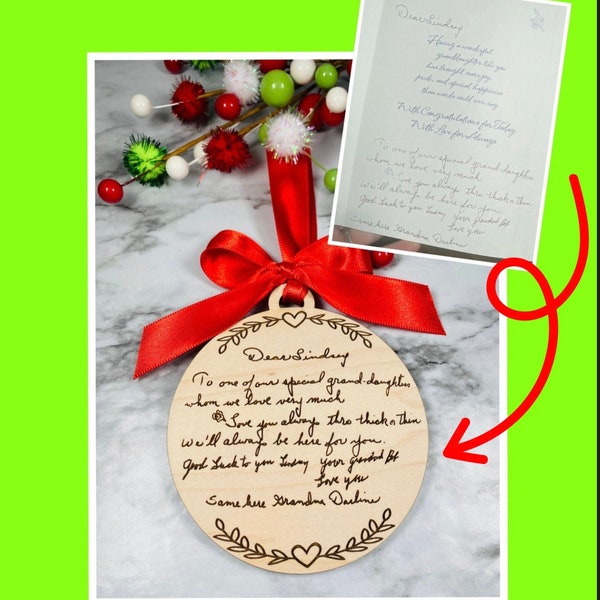 Dear Lindsey
Having a wonderful
granddaughter like you
has brought more joy,
pride, and special happiness
than words could ever say.
With Congratulations for Today
With Love for Always
To one of our special grand-daughters
whom we love very much
Love you always thro thick n thin
We'll always be here for you.
Good Luck to you Lindsay your grandad Bt
Love you
Same here Grandma Darline
Dear Lindsey
To one of our special grand-daughters
whom we love very much
Love you always thro thick n thin
We'll always be here for you.
Good Luck to you Lindsay your grandad Bt
Love you
Same here Grandma Darline